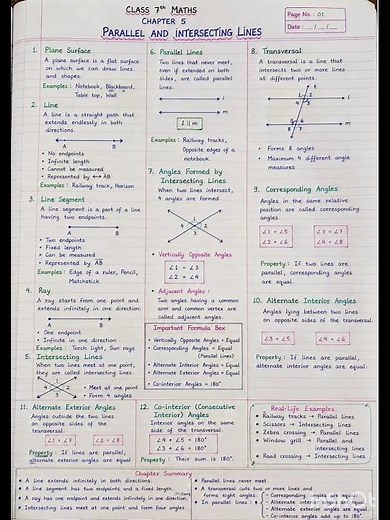 CLASS 7th MATHS
CHAPTER 5
PARALLEL AND INTERSECTING LINES
Page No.: 01
Date: __/__/__
1. Plane Surface
A plane surface is a flat surface
on which we can draw lines
and shapes.
Examples: Notebook, Blackboard,
Table top, Wall
2. Line
A line is a straight path that
extends endlessly in both
directions.
A B
• No endpoints
• Infinite length
• Cannot be measured
• Represented by ↔ AB
Examples: Railway track, Horizon
3. Line Segment
A line segment is a part of a line
having two endpoints.
A B
• Two endpoints
• Fixed length
• Can be measured
• Represented by AB
Examples: Edge of a ruler, Pencil,
Matchstick
4. Ray
A ray starts from one point and
extends infinitely in one direction.
A B
• One endpoint
• Infinite in one direction
Examples: Torch light, Sun rays
5. Intersecting Lines
When two lines meet at one point,
they are called intersecting lines.
• Meet at one point
• Form 4 angles
6. Parallel Lines
Two lines that never meet,
even if extended on both
sides, are called parallel
lines.
l
m
l || m
Examples: Railway tracks,
Opposite edges of a
notebook
7. Angles Formed by
Intersecting Lines
When two lines intersect,
4 angles are formed.
1
4 2
3
• Vertically Opposite Angles
∠1 = ∠3
∠2 = ∠4
• Adjacent Angles:
Two angles having a common
arm and common vertex are
called adjacent angles.
Important Formula Box
• Vertically Opposite Angles = Equal
• Corresponding Angles = Equal
(Parallel Lines)
• Alternate Interior Angles = Equal
• Alternate Exterior Angles = Equal
• Co-interior Angles = 180°
8. Transversal
A transversal is a line that
intersects two or more lines
at different points.
t
1 2
4 3
l
5 6
8 7
m
• Forms 8 angles
• Maximum 4 different angle
measures
9. Corresponding Angles
Angles in the same relative
position are called corresponding
angles.
∠1 = ∠5 ∠3 = ∠7
∠2 = ∠6 ∠4 = ∠8
Property: If two lines are
parallel, corresponding angles
are equal.
10. Alternate Interior Angles
Angles lying between two lines
on opposite sides of the transversal.
∠3 = ∠5 ∠4 = ∠6
Property: If lines are parallel,
alternate interior angles are equal.
11. Alternate Exterior Angles
Angles outside the two lines
on opposite sides of the
transversal.
∠1 = ∠7 ∠2 = ∠8
Property: If lines are parallel,
alternate exterior angles are equal.
12. Co-interior (Consecutive
Interior) Angles
Interior angles on the same
side of the transversal.
∠4 + ∠5 = 180°
∠3 + ∠6 = 180°
Property: Their sum is 180°.
Real-Life Examples
• Railway tracks → Parallel lines
• Scissors → Intersecting lines
• Zebra crossing → Parallel lines
• Window grill → Parallel and
intersecting lines
• Road crossing → Intersecting lines
Chapter Summary
• A line extends infinitely in both directions.
• A line segment has two endpoints and a fixed length.
• A ray has one endpoint and extends infinitely in one direction.
• Intersecting lines meet at one point and form four angles.
• Parallel lines never meet.
• A transversal cuts two or more lines and
forms eight angles.
• In parallel lines:
• Corresponding angles are equal.
• Alternate interior angles are equal.
• Alternate exterior angles are equal.
• Co-interior angles add up to 180°.